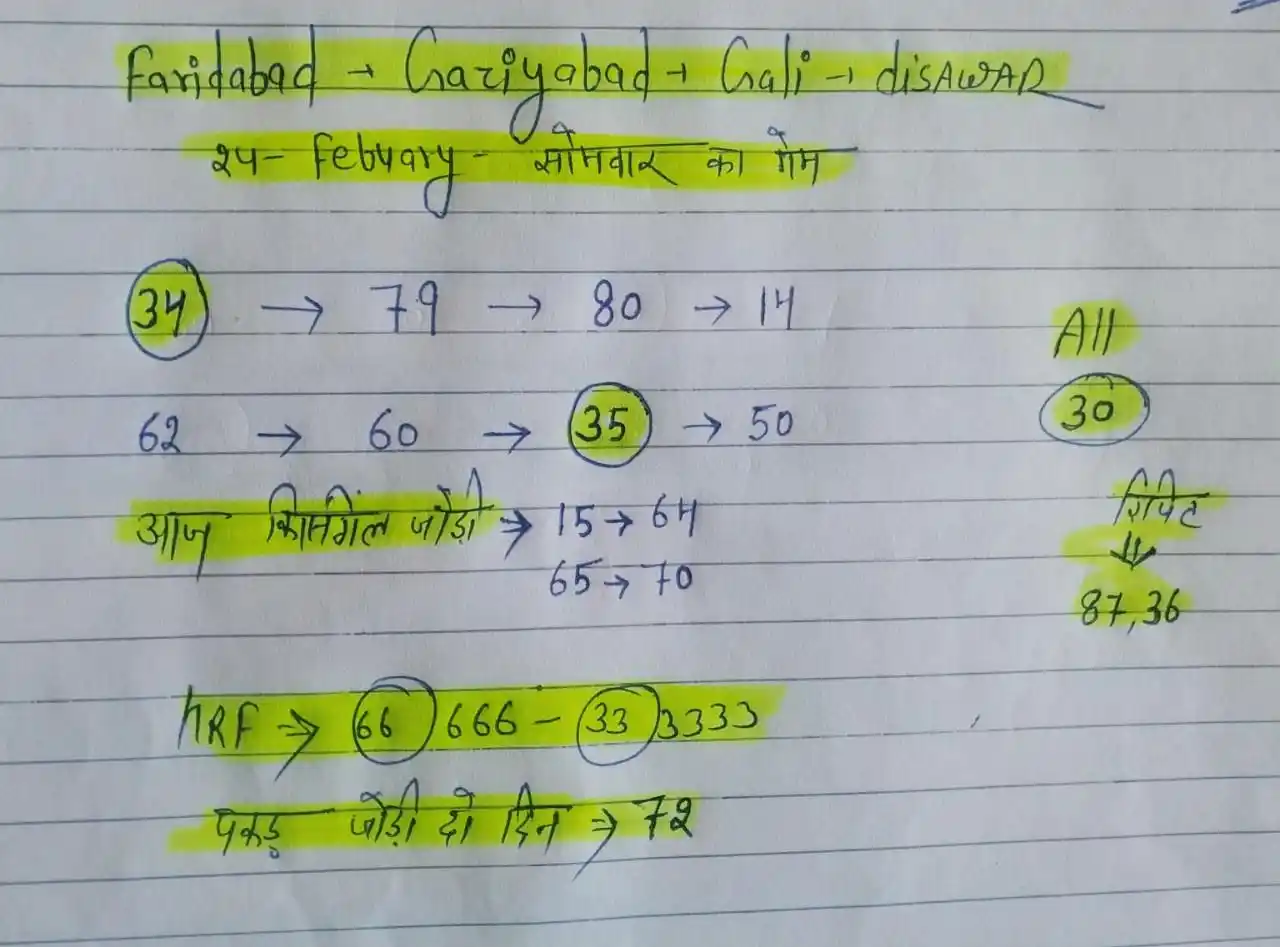 Faridabad → Gaziyabad → Gali → disAWAR
24- Febuary - सोमवार का गेम
34 → 79 → 80 → 14
All
62 → 60 → 35 → 50
30
आज जोड़ी → 15 → 64
रिपिट
65 → 70
87,36
HRF ⇒ 66 666 - 33 3333
पकड़ जोड़ी दो दिन ⇒ 72